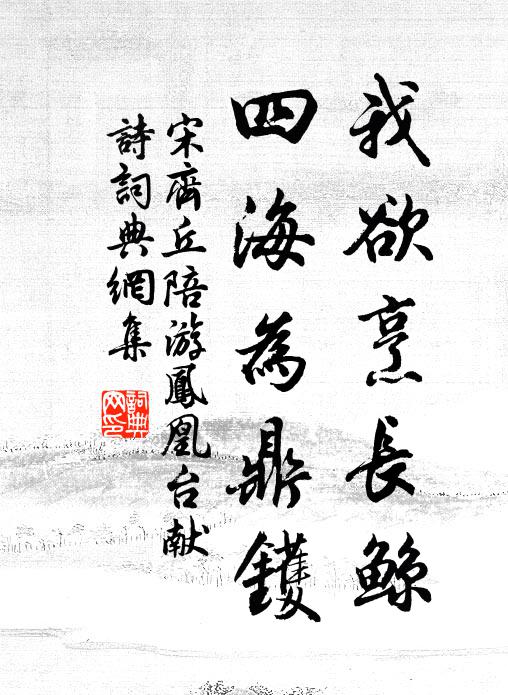 我欲烹長鯨
四海為鼎鑊
宋齊丘陪游鳳凰台献
詩詞典網集
詞典
网印